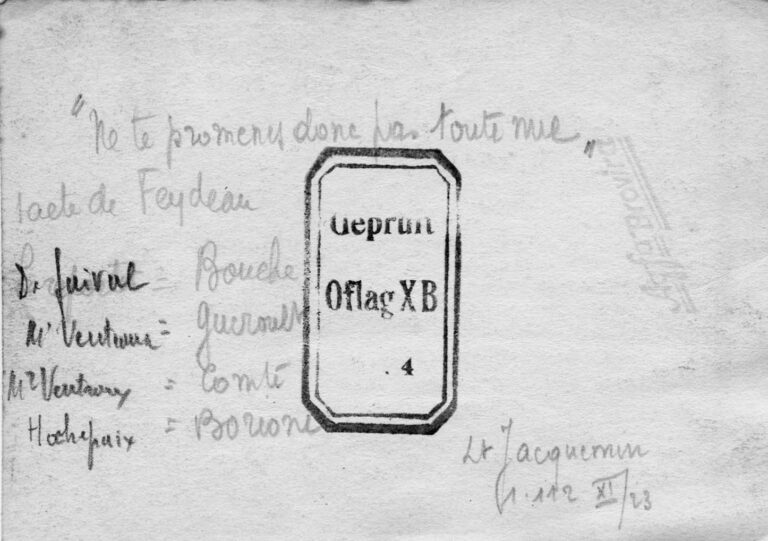 "Ne te promenes donc pas toute nue"
1 acte de Feydeau
De Jaival = Bouche
Mr Ventroux = Gueroult
Me Ventroux = Comté
Hochepaix = Borione
Geprüft
Oflag XB
4
Lt Jacquemin
1.112 XI/23